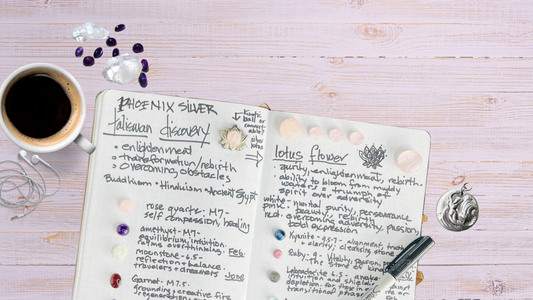 PHOENIX SILVER
talisman discovery
• enlightenment
• transformation/rebirth
• overcoming obstacles
Buddhism • Hinduism • Ancient Egypt
rose quartz. M7-
self compassion, healing
amethyst- M7-
equilibrium, intuition. Feb.
calms overthinking.
moonstone-6.5-
reflection + balance.
travelers + dreamers June
Garnet- M7.5
grounding + creative fire
Kinetic
ball or
connect-
able?
other
lotus
lotus flower
purity, enlightenment, rebirth.
• ability to bloom from muddy
waters = triumph of
spirit over adversity
white- mental purity, perseverance
pink- beauty, rebirth
red- overcoming adversity, passion,
bold expression
Kyanite- alignment, truth
+ clarity, cleansing stone
Ruby-9- Vitality, passion,
the stone of kings
Labradorite 6.5-
intuition and shield
transitional phase